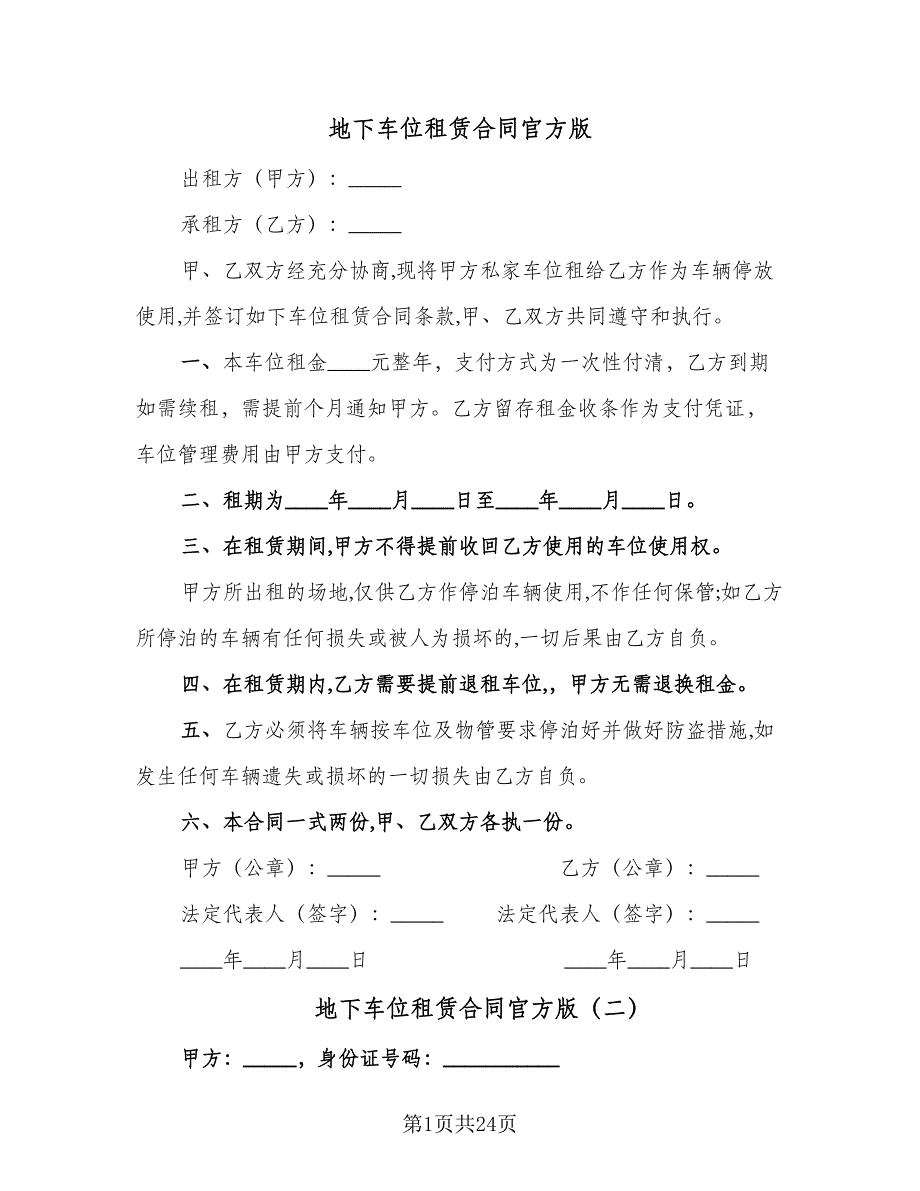 地下车位租赁合同官方版
出租方（甲方）：_____
承租方（乙方）：_____
甲、乙双方经充分协商,现将甲方私家车位租给乙方作为车辆停放
使用,并签订如下车位租赁合同条款,甲、乙双方共同遵守和执行。
一、本车位租金____元整年，支付方式为一次性付清，乙方到期
如需续租，需提前个月通知甲方。乙方留存租金收条作为支付凭证，
车位管理费用由甲方支付。
二、租期为____年____月____日至____年____月____日。
三、在租赁期间,甲方不得提前收回乙方使用的车位使用权。
甲方所出租的场地,仅供乙方作停泊车辆使用,不作任何保管;如乙方
所停泊的车辆有任何损失或被人为损坏的,一切后果由乙方自负。
四、在租赁期内,乙方需要提前退租车位,，甲方无需退换租金。
五、乙方必须将车辆按车位及物管要求停泊好并做好防盗措施,如
发生任何车辆遗失或损坏的一切损失由乙方自负。
六、本合同一式两份,甲、乙双方各执一份。
甲方（公章）：_____ 乙方（公章）：_____
法定代表人（签字）：_____ 法定代表人（签字）：_____
____年____月____日 ____年____月____日
地下车位租赁合同官方版（二）
甲方：_____，身份证号码：___________
第1页共24页